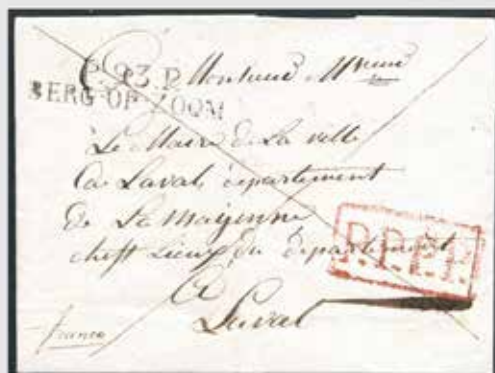 P.93.P.
BERG-OP-ZOOM
A Monsieur Monsieur
Le Maire de La ville
De Laval, département
De La mayenne
cheft Lieux du département
P.P.P.P.
A
Laval
franco